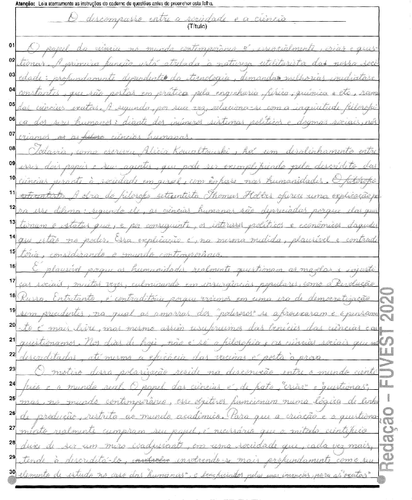 Atenção: Leia atentamente as instruções do caderno de questões antes de preencher esta folha.
O descompasso entre a sociedade e a ciência
(Título)
01 O papel da ciência no mundo contemporâneo é essencialmente criar e ques-
02 tionar. A primeira função está atrelada à natureza utilitarista da nossa socie-
03 dade: profundamente dependente da tecnologia, demanda melhorias imediatas e
04 constantes que são postas em prática pela engenharia, física, química e etc, ramos
05 das ciências exatas. A segunda, por sua vez, relaciona-se com a inquietude filosófi-
06 ca do ser humano: diante de inúmeros sistemas políticos e dogmas sociais,
07 criamos as ciências humanas.
08 Todavia, como escreveu Alicia Kowaltowski, há um desalinhamento entre
09 esses dois papéis e seus agentes, que pode ser exemplificado pelo descrédito das
10 ciências perante a sociedade em geral, com ênfase nas humanidades. O filósofo
11 A ideia do filósofo Thomas Hobbes oferece uma explicação para
12 esse dilema: segundo ele, as ciências humanas são depreciadas porque
13 o status quo e, por conseguinte, o interesse político e econômico daqueles
14 que estão no poder. Essa explicação é, na mesma medida, plausível e contradi-
15 tória, considerando o mundo contemporâneo.
16 É plausível porque as humanidades realmente questionam as mazelas e injusti-
17 ças sociais, muitas vezes culminando em insurgências populares como a Revolução
18 Russa. Entretanto, é contraditória porque vivemos em uma era de democratização
19 sem precedentes, na qual as amarras dos "poderosos" se afrouxaram e o pensamen-
20 to é mais livre, mas mesmo assim
21 questionamos. Nos dias de hoje, não é só a filosofia e as ciências sociais que são
22 desacreditadas, até mesmo a eficácia das vacinas é posta à prova.
23 O motivo dessa polarização reside na desconexão entre o mundo cientí-
24 fico e o mundo real. O papel das ciências é, de fato, "criar" e "questionar",
25 mas, no mundo contemporâneo, esses objetivos funcionam numa lógica de linha
26 de produção, restrita ao mundo acadêmico. Para que a criação e o questiona-
27 mento realmente cumpram seu papel, é necessário que o método científico
28 deixe de ser um mero coadjuvante em uma sociedade que, cada vez mais,
29 tende a desacreditá-lo, envolvendo-a mais profundamente como
30 elemento de estudo no caso das "humanas" e
Redação - FUVEST 2020